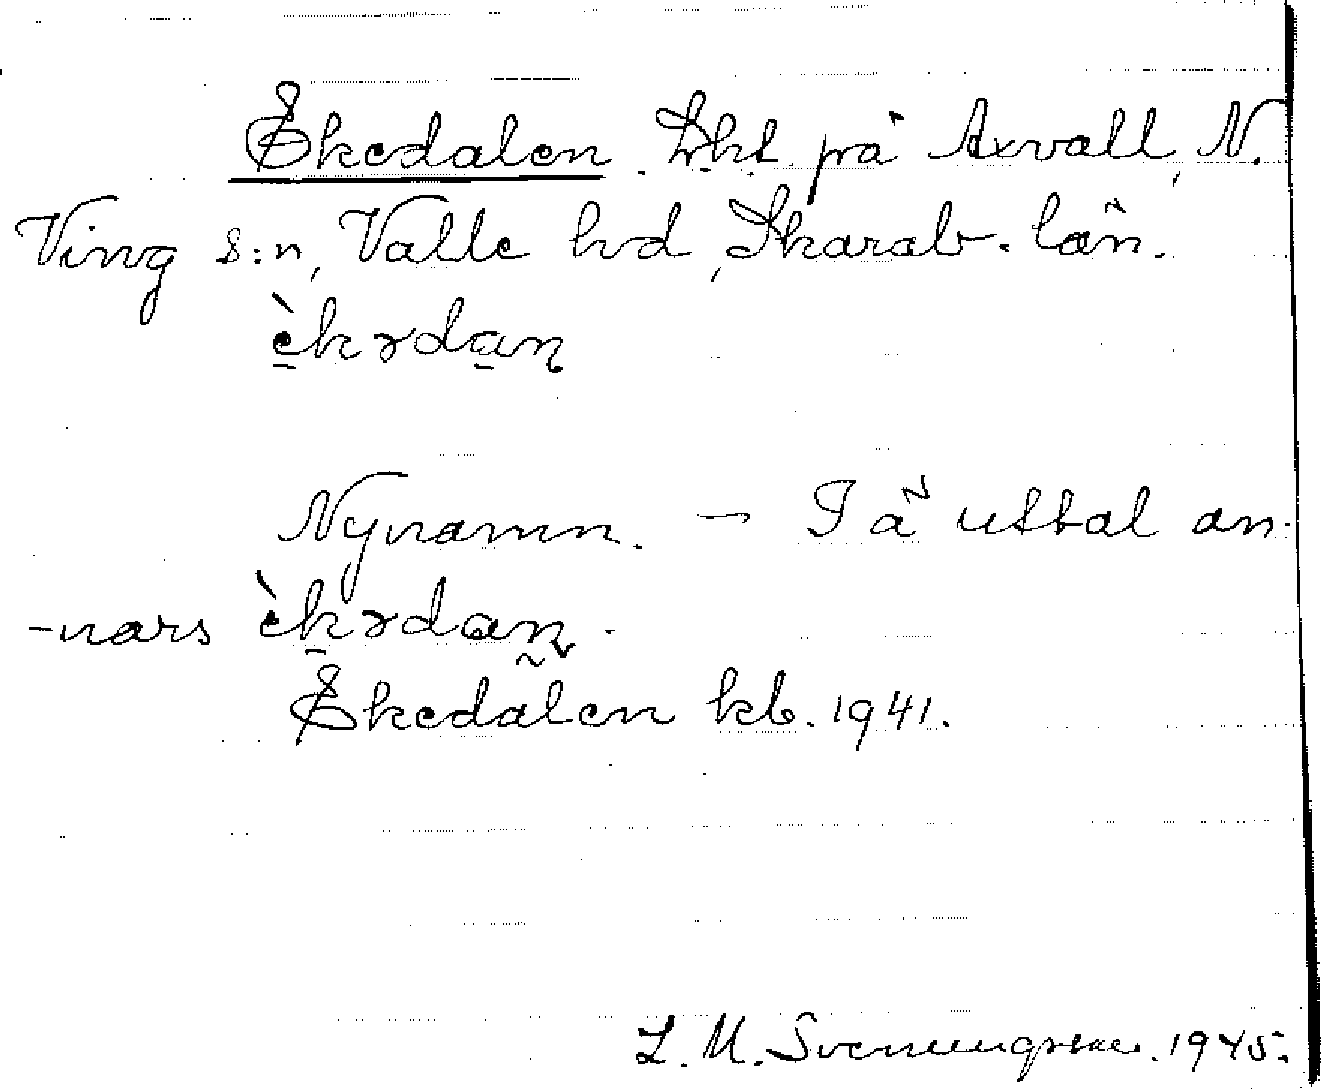 Ekedalen. Lht. på Axvall, N.
Ving s:n, Valle hd, Skarab. län.
èkədan̥
Nynamn. – I ä uttal an-
-nars èkədan̥.
Ekedalen kb. 1941.
L. M. Svenungsson. 1945.